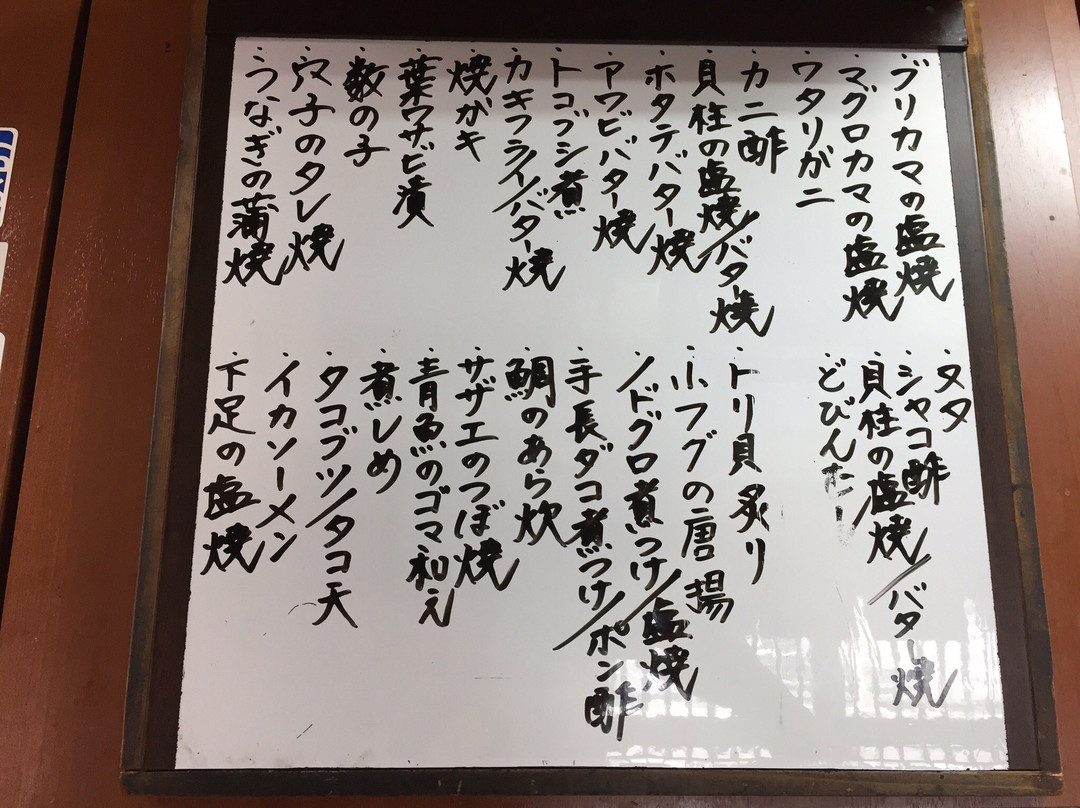 ・ブリカマの塩焼
・マグロカマの塩焼
・ワタリガニ
・カニ酢
・貝柱の塩焼/バター焼
・ホタテバター焼
・アワビバター焼
・トコブシ煮
・カキフライ/バター焼
・焼ガキ
・葉ワサビ漬
・数の子
・穴子のタレ焼
・うなぎの蒲焼
・ヌタ
・シャコ酢
・貝柱の塩焼/バター焼
・どびんむし
・トリ貝炙り
・小フグの唐揚
・ノドグロ煮つけ/塩焼
・手長ダコ煮つけ/ポン酢
・鯛のあら炊
・サザエのつぼ焼
・青魚のゴマ和え
・煮しめ
・タコブツ/タコ天
・イカソーメン
・下足の塩焼